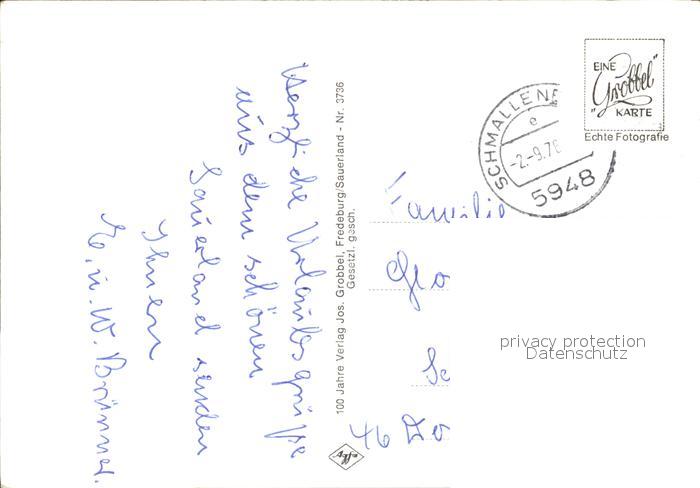 Herzliche Urlaubsgrüße
aus dem schönen
Sauerland senden
Ihnen
E. u. W. Brünner.
100 Jahre Verlag Jos. Grobbel, Fredeburg/Sauerland - Nr. 3736
Gesetzl. gesch.
Agfa
EINE
"Grobbel"
KARTE
Echte Fotografie
SCHMALLENB
e
-2.-9.76
5948
Familie
Glo
Sc
46 Do
privacy protection
Datenschutz